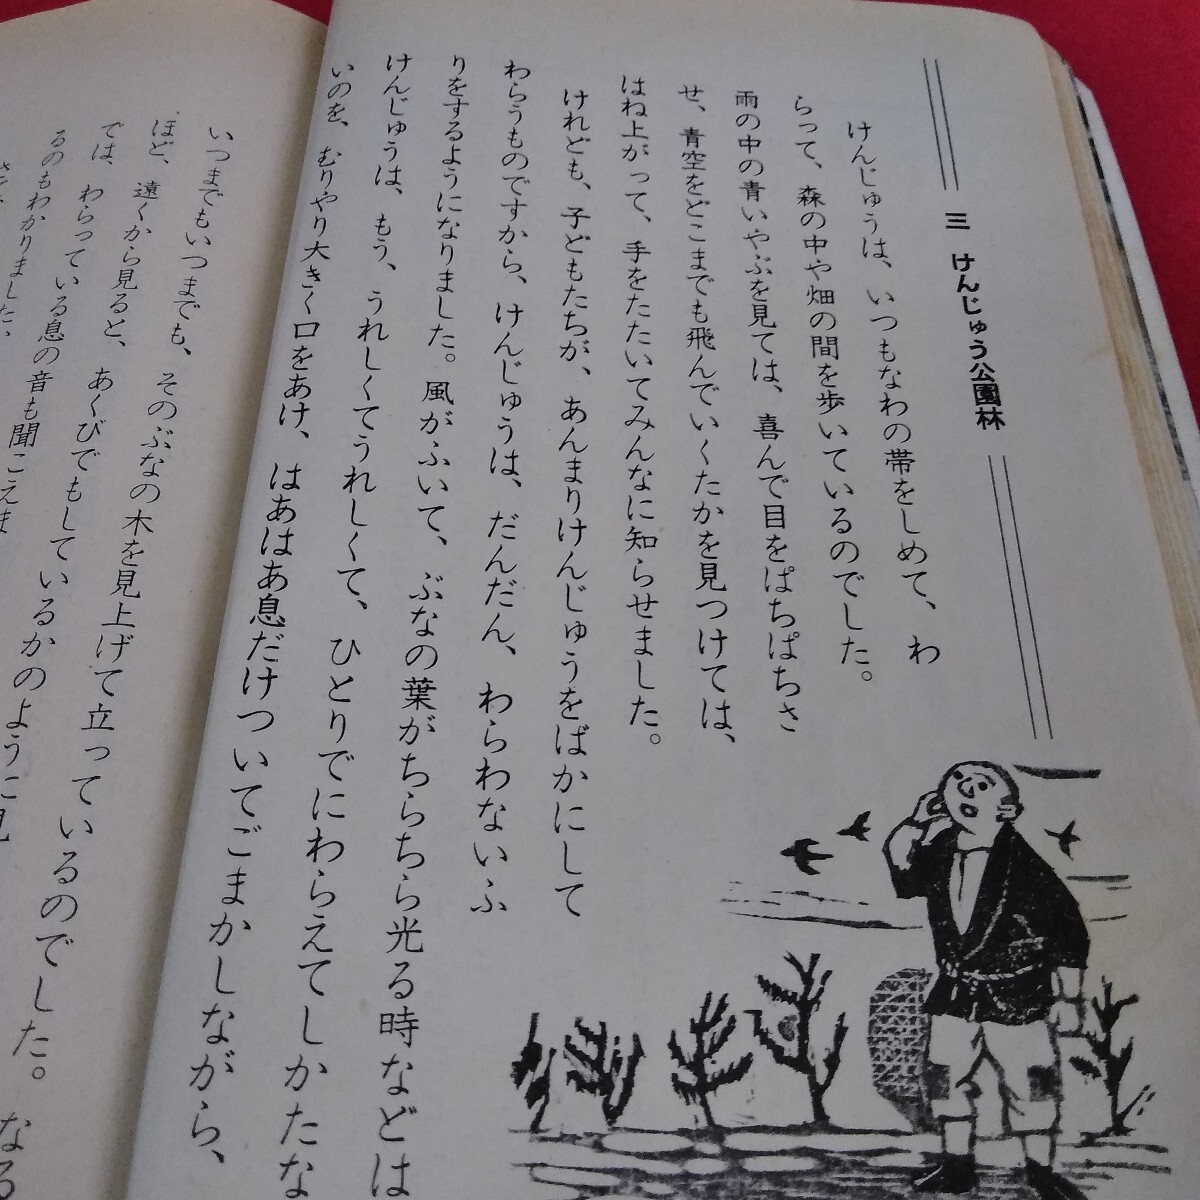 三 けんじゅう公園林
けんじゅうは、いつもなわの帯をしめて、わ
らって、森の中や畑の間を歩いているのでした。
雨の中の青いやぶを見ては、喜んで目をぱちぱちさ
せ、青空をどこまでも飛んでいくたかを見つけては、
はね上がって、手をたたいてみんなに知らせました。
けれども、子どもたちが、あんまりけんじゅうをばかにして
わらうものですから、けんじゅうは、だんだん、わらわないふ
りをするようになりました。風がふいて、ぶなの葉がちらちら光る時などは
けんじゅうは、もう、うれしくてうれしくて、ひとりでにわらえてしかたな
いのを、むりやり大きく口をあけ、はあはあ息だけついてごまかしながら、
いつまでもいつまでも、そのぶなの木を見上げて立っているのでした。
ほど、遠くから見ると、あくびでもしているかのように見
では、わらっている息の音も聞こえま
るのもわかりました、